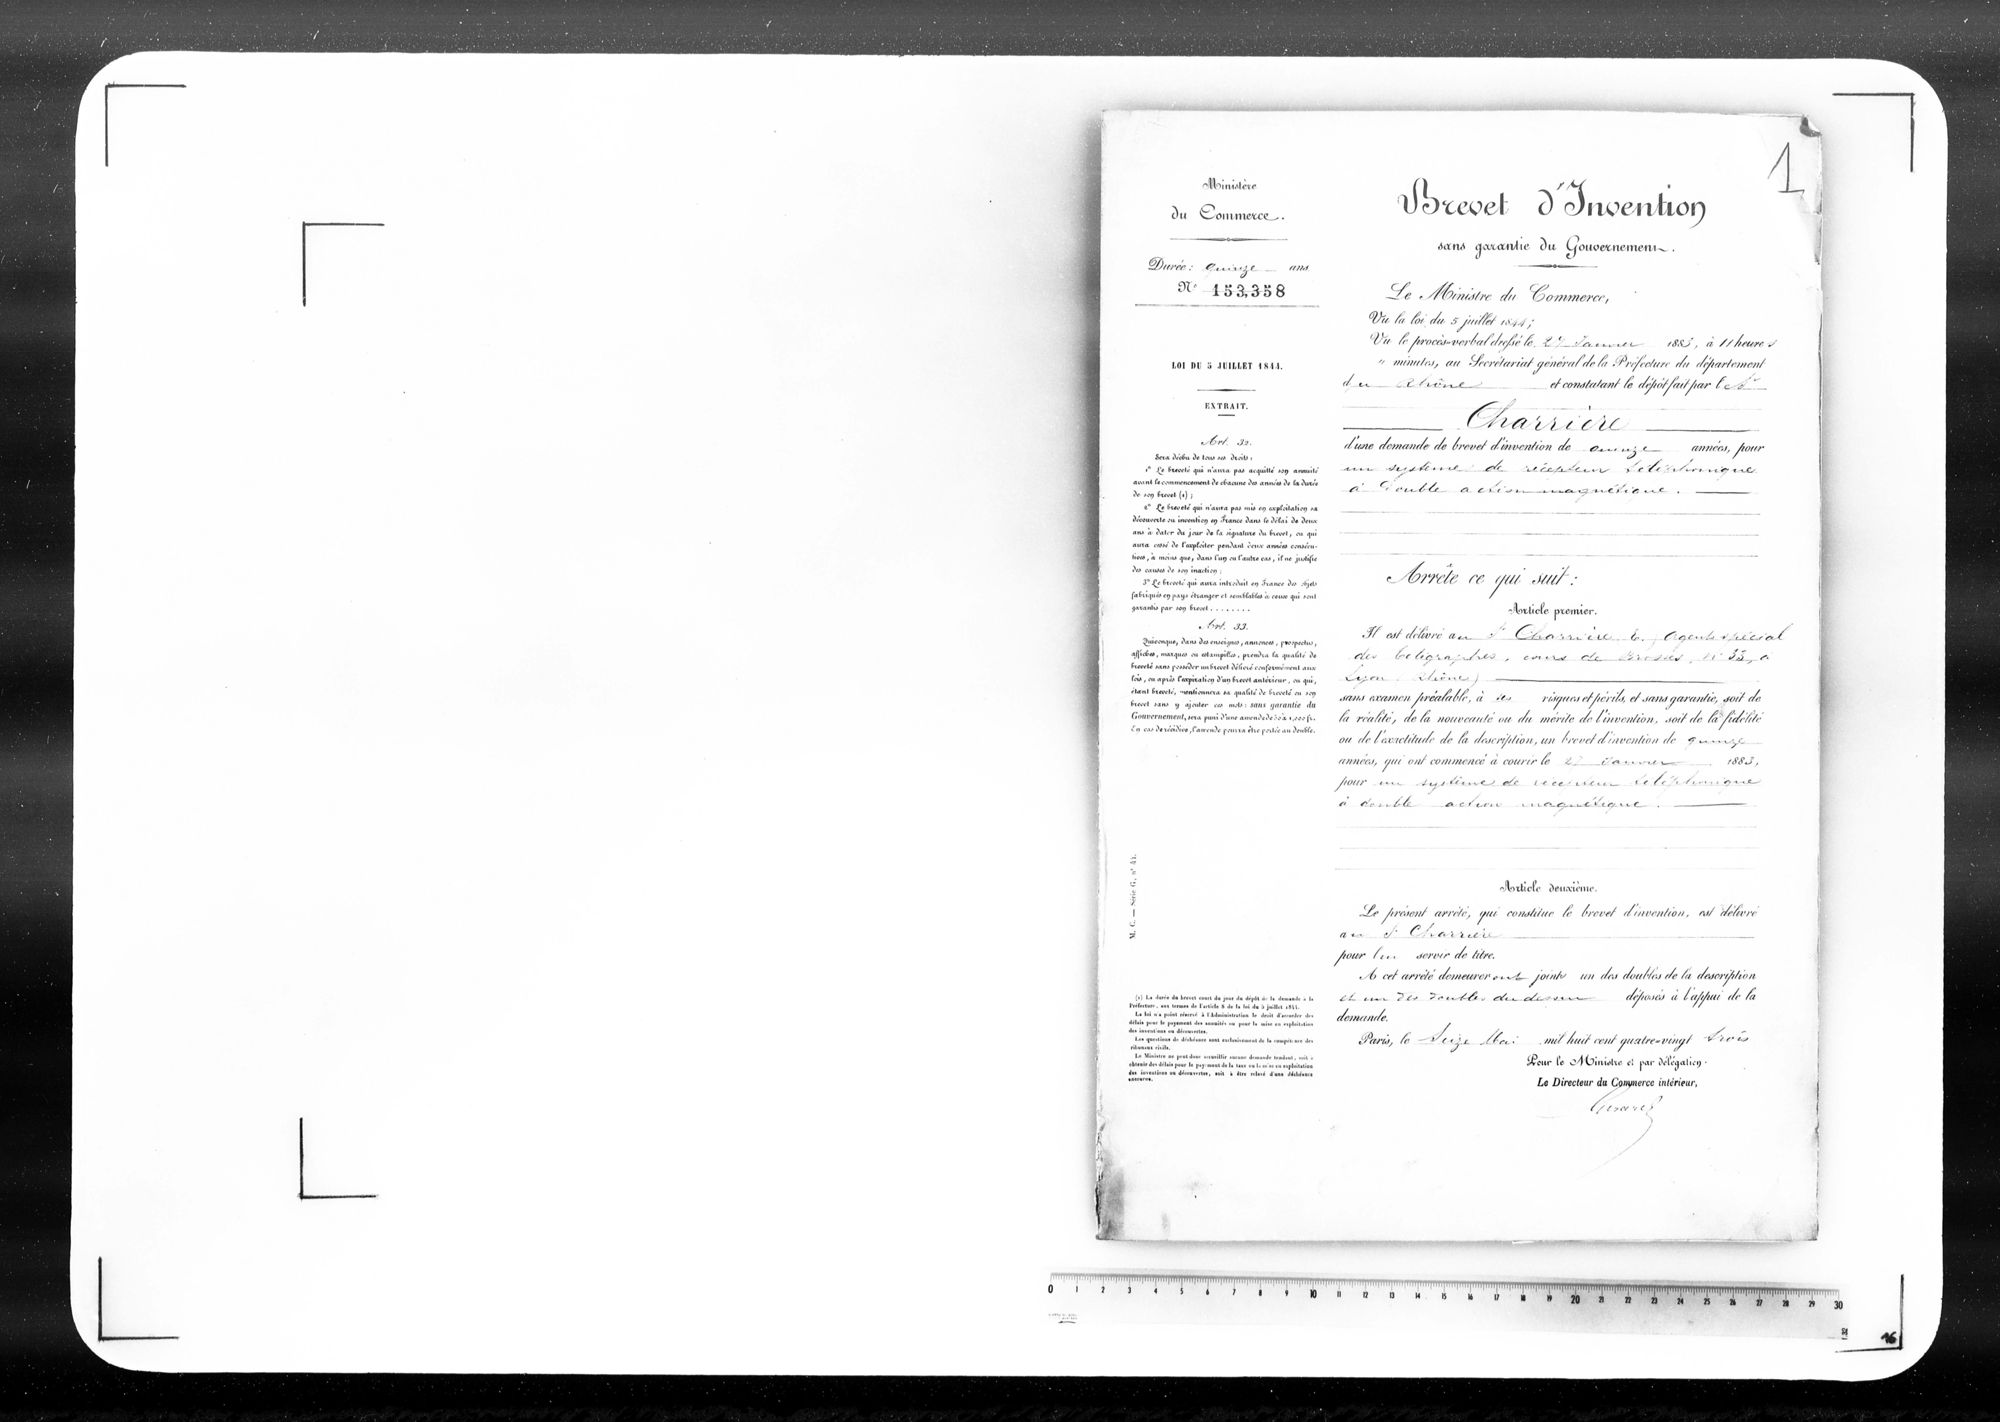 1
Ministère
du Commerce.
Durée: quinze ans
N° 153,358
LOI DU 5 JUILLET 1844.
EXTRAIT.
Art. 32.
Sera déchu de tous ses droits:
1° Le breveté qui n'aura pas acquitté son annuité
avant le commencement de chacune des années de la durée
de son brevet (1);
2° Le breveté qui n'aura pas mis en exploitation sa
découverte ou invention en France dans le délai de deux
ans à dater du jour de la signature du brevet, ou qui
aura cessé de l'exploiter pendant deux années consécu-
tives, à moins que, dans l'un ou l'autre cas, il ne justifie
des causes de son inaction;
3° Le breveté qui aura introduit en France des objets
fabriqués en pays étranger et semblables à ceux qui sont
garantis par son brevet........
Art. 33.
Quiconque, dans des enseignes, annonces, prospectus,
affiches, marques ou estampilles, prendra la qualité de
breveté sans posséder un brevet délivré conformément aux
lois, ou après l'expiration d'un brevet antérieur, ou qui,
étant breveté, mentionnera sa qualité de breveté ou son
brevet sans y ajouter ces mots: sans garantie du
Gouvernement, sera puni d'une amende de 50 à 1,000 fr.
En cas de récidive, l'amende pourra être portée au double.
M. C. — Série G, n° 41.
(1) La durée du brevet court du jour du dépôt de la demande à la
Préfecture, aux termes de l'article 8 de la loi du 5 juillet 1844.
La loi n'a point réservé à l'Administration le droit d'accorder des
délais pour le payement des annuités ou pour la mise en exploitation
des inventions ou découvertes.
Les questions de déchéance sont exclusivement de la compétence des
tribunaux civils.
Le Ministre ne peut donc accueillir aucune demande tendant, soit à
obtenir des délais pour le payement de la taxe ou la mise en exploitation
des inventions ou découvertes, soit à être relevé d'une déchéance
encourue.
Brevet d'Invention
sans garantie du Gouvernement.
Le Ministre du Commerce,
Vu la loi du 5 juillet 1844;
Vu le procès-verbal dressé le 27 Janvier 1883, à 11 heures
" minutes, au Secrétariat général de la Préfecture du département
du Rhône et constatant le dépôt fait par le Sr
Charrière
d'une demande de brevet d'invention de quinze années, pour
un système de récepteur téléphonique
à double action magnétique.
Arrête ce qui suit:
Article premier.
Il est délivré au Sr Charrière E., agent spécial
des télégraphes, cours de Brosses, N° 33, à
Lyon (Rhône)
sans examen préalable, à ses risques et périls, et sans garantie, soit de
la réalité, de la nouveauté ou du mérite de l'invention, soit de la fidélité
ou de l'exactitude de la description, un brevet d'invention de quinze
années, qui ont commencé à courir le 27 Janvier 1883,
pour un système de récepteur téléphonique
à double action magnétique.
Article deuxième.
Le présent arrêté, qui constitue le brevet d'invention, est délivré
au Sr Charrière
pour lui servir de titre.
A cet arrêté demeureront joints un des doubles de la description
et un des doubles du dessin déposés à l'appui de la
demande.
Paris, le Seize Mai mil huit cent quatre-vingt trois
Pour le Ministre et par délégation.
Le Directeur du Commerce intérieur,
0 1 2 3 4 5 6 7 8 9 10 11 12 13 14 15 16 17 18 19 20 21 22 23 24 25 26 27 28 29 30
16